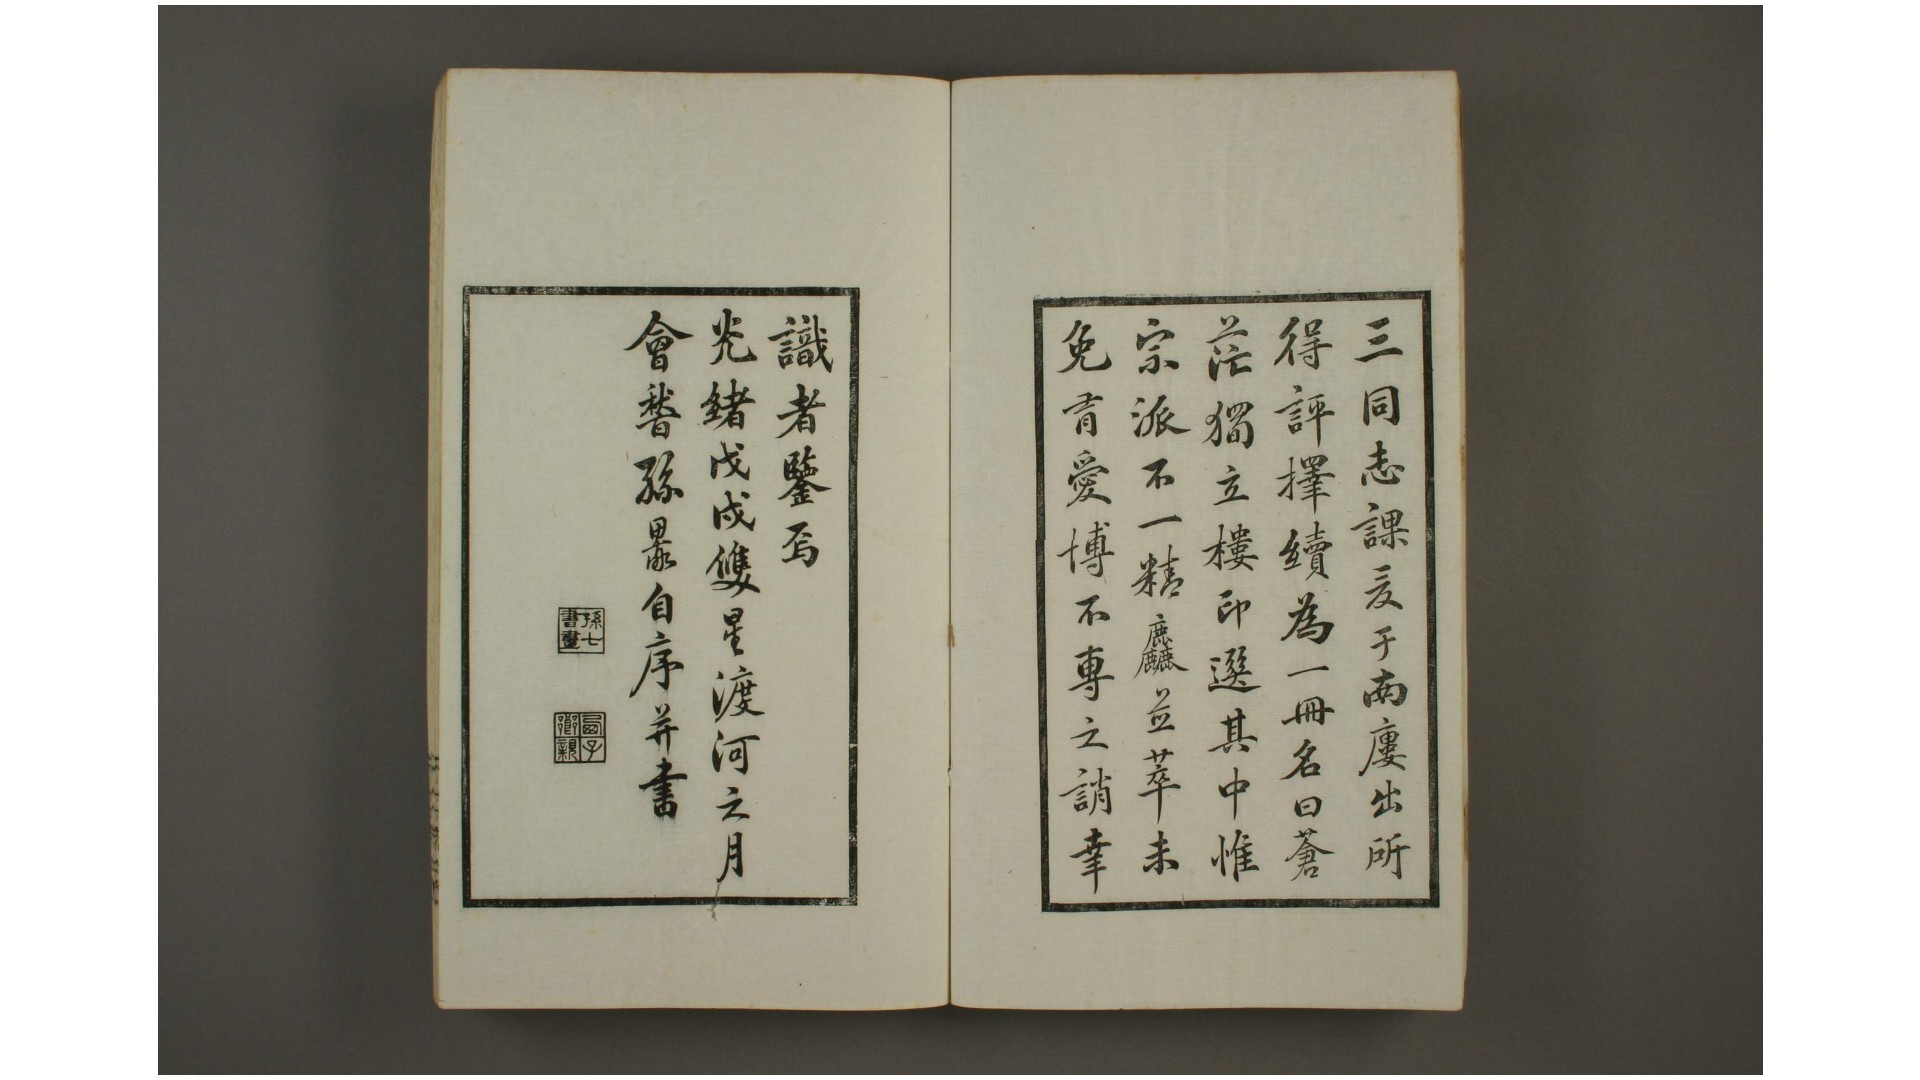 三同志課爰于南廔出所
得評擇續為一冊名曰蒼
茫獨立樓印選其中惟
宗派不一精麤並萃未
免有愛博不專之誚幸
識者鑒焉
光緒戊戌雙星渡河之月
會稽孫自序并書
孫七書畫